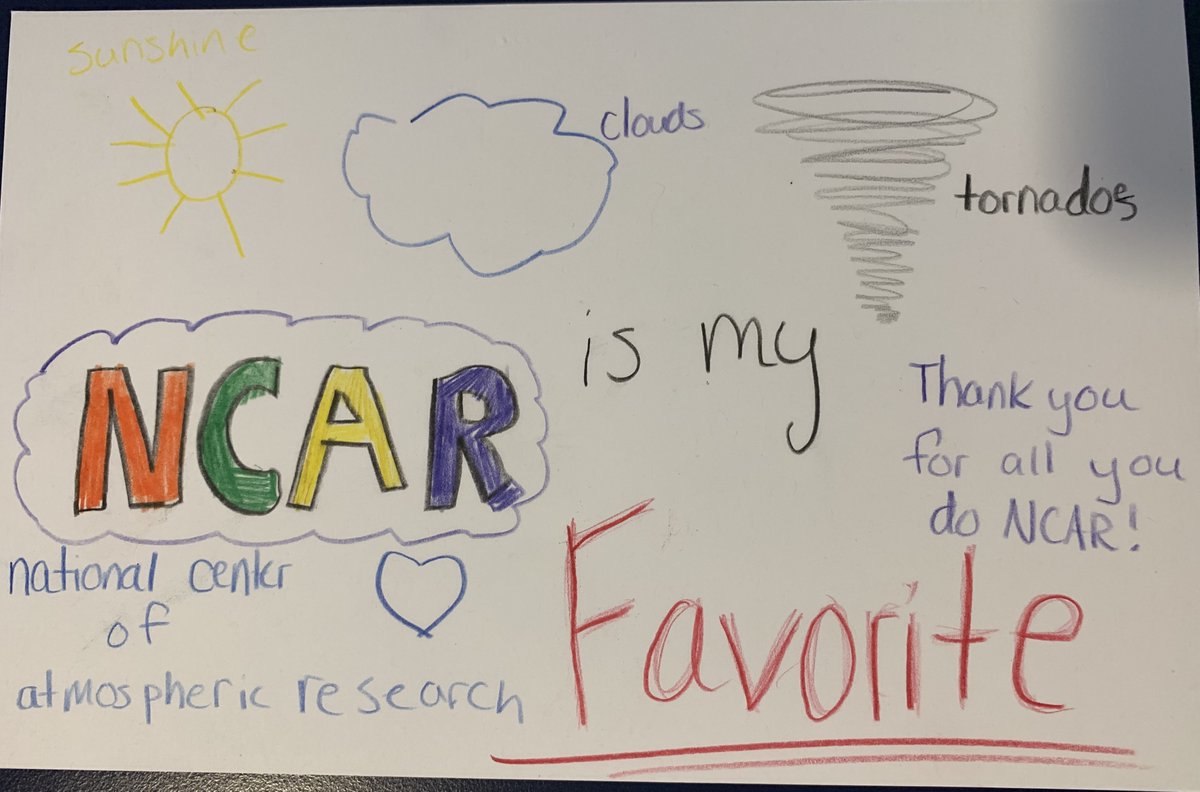 sunshine
clouds
tornados
NCAR
is my
Favorite
Thank you
for all you
do NCAR!
national center
of
atmospheric research